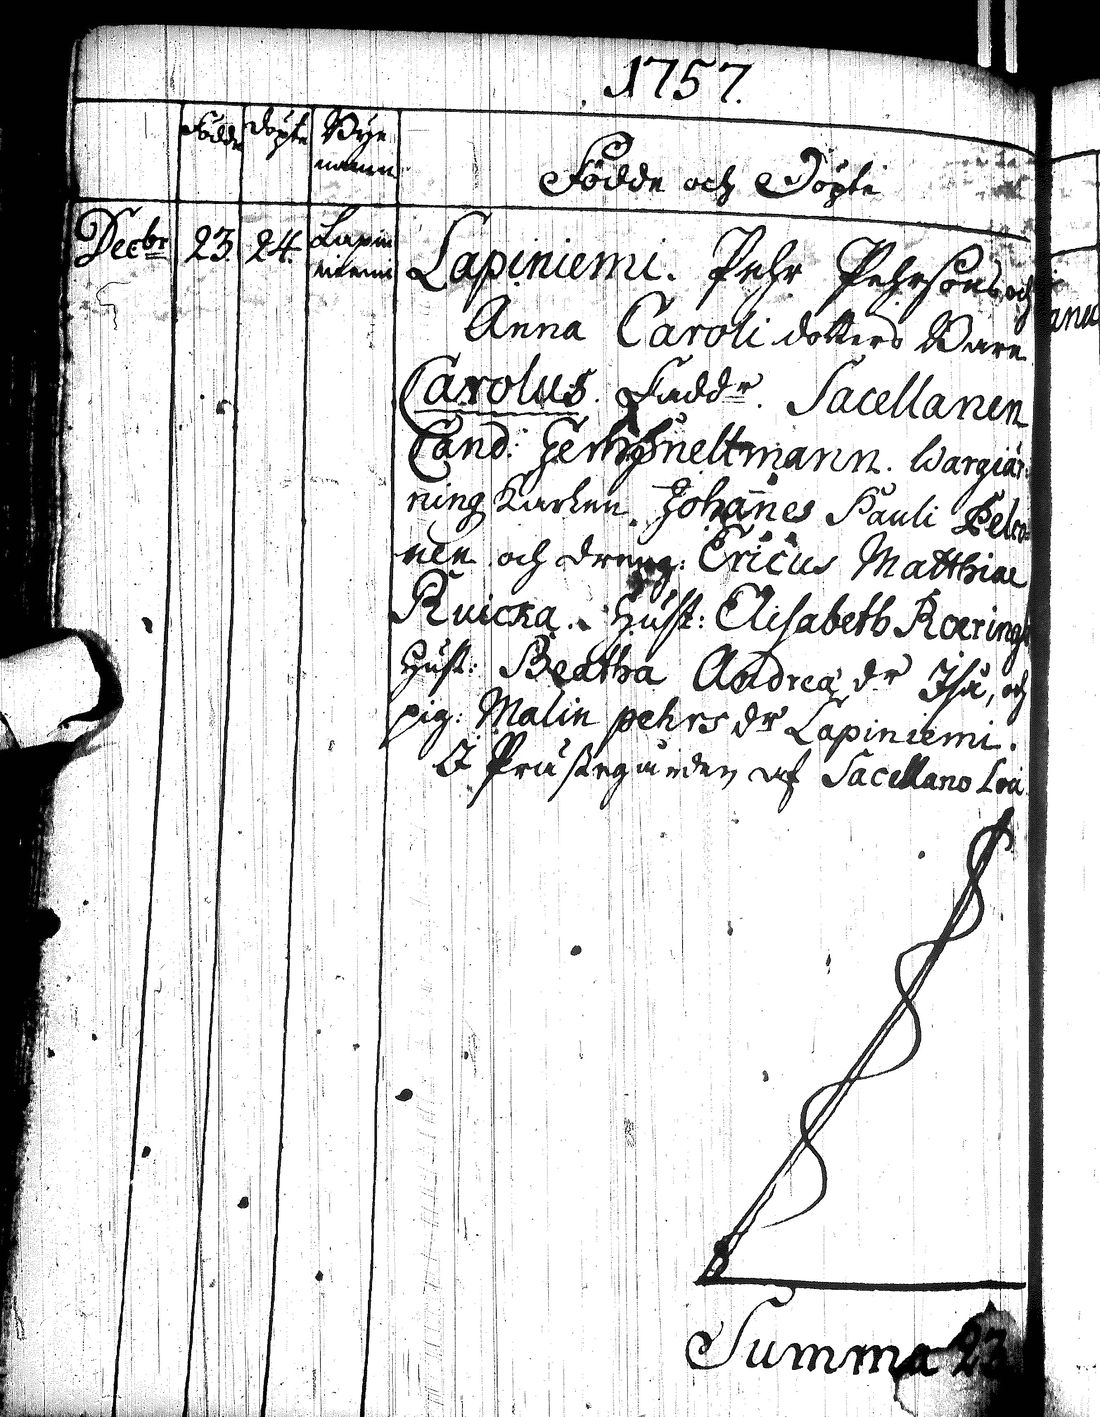 1757.
Födde
Döpte
Bye
namn
Födde och Döpte
Decbr
23.
24.
Lapin
niemi
Lapiniemi. Pehr Pehrsons och
Anna Caroli dotters Barn
Carolus. Faddr. Sacellanen
Cand: Hemmneltmann. Wargiär-
ning Karlen. Johannes Pauli Pelco-
nen och dreng: Ericus Matthiae
Ruicka. Hust: Elisabeth Roering
Hust: Beatha Andreæ dr Isa, och
pig: Malin pehrs dr Lapiniemi.
I Prästegården af Sacellano Loci
Summa 23